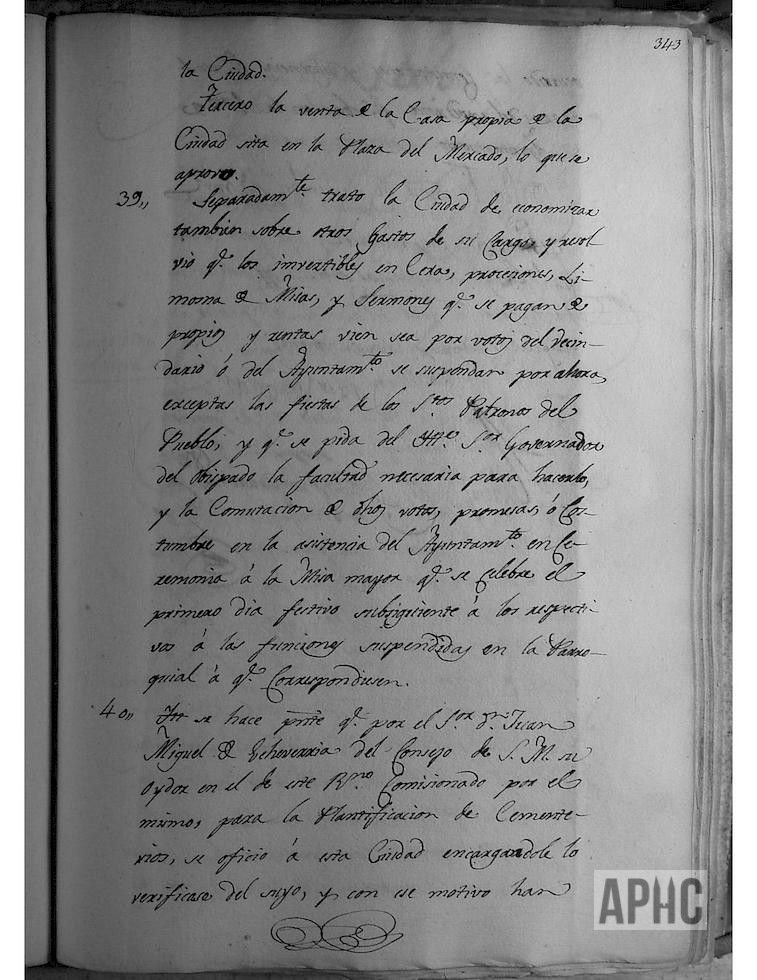 343
la Ciudad.
Tercero la venta de la Casa propia de la
Ciudad sita en la Plaza del Mercado, lo que se
aprovo.
39,, Separadam.te trato la Ciudad de economizar
tambien sobre otros Gastos de su Cargo, y resol-
vio q.e los invertibles en Cera, prociones, Li-
mosna de Misas, y Sermones q.e se pagan de
propios y rentas vien sea por votos del vecin-
dario ó del Ayuntam.to se suspendan por ahora,
exceptas las fiestas de los S.tos Patronos del
Pueblo; y q.e se pida del Ill.e S.or Governador
del obispado la facultad necesaria para hacerlo,
y la Comutacion de dhos votos, promesas, ó Cos-
tumbre en la asistencia del Ayuntam.to en Ce-
remonia á la Misa mayor q.e se celebre el
primero dia festivo subsiguiente á los respecti-
vos á las funciones suspendidas en la Parro-
quial á q.e Correspondiesen.
40,, Itt se hace pnte q.e por el S.or D.n Juan
Miguel de Echeverria del Consejo de S. M. su
oydor en el de este R.no Comisionado por el
mismo, para la Plantificacion de Cemente-
rios, se oficio á esta Ciudad encargandole lo
verificase del suyo, y con ese motivo han
APHC